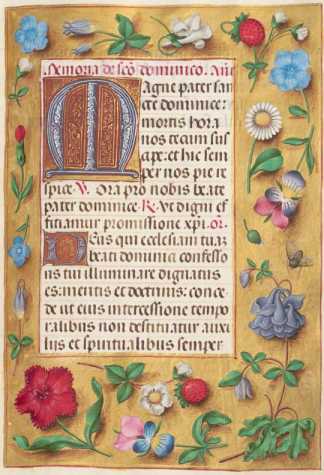 Memoria de sco dominico. Añ
Magne pater san
cte dominice:
mortis hora
nos tecum sus
cipe: et hic sem
per nos pie re
spice V. Ora pro nobis beate
pater dominice. R. Vt digni ef
ficiamur promissione xpi. Or.
Deus qui ecclesiam tuaz
beati dominici confesso
ris tui illuminare dignatus
es: meritis et doctrinis: conce
de ut eius intercessione tempo
ralibus non destituatur auxi
liis et spiritualibus semper